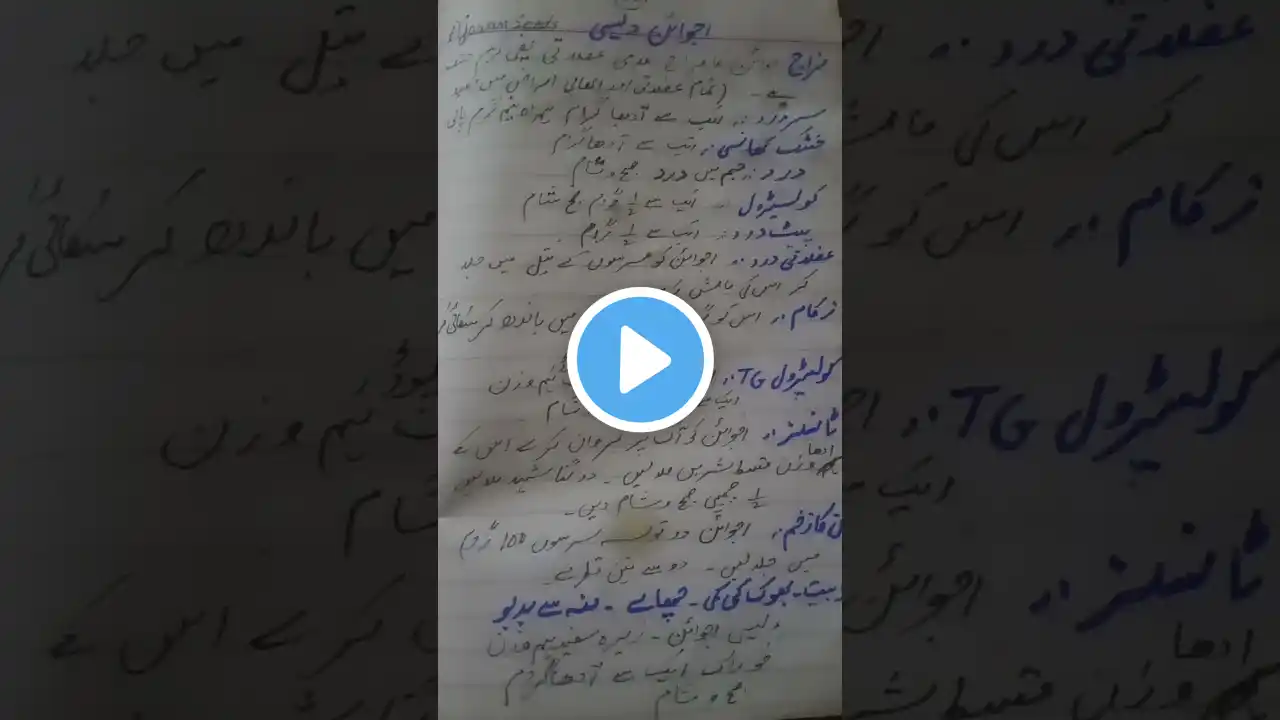 اجوائن دیسی Ajowan Seeds
مزاج
ہے۔ (تمام عضلاتی اور اعصابی امراض میں
سر درد:۔ ایک سے آدھا گرام ہمراہ نیم گرم پانی
خشک کھانسی:۔ ایک سے آدھا گرام
درد:۔ جسم میں درد صبح و شام
کولیسٹرول :۔ ایک سے ½ گرام صبح شام
پیٹ درد:۔ ایک سے ½ گرام
عضلاتی درد:۔ اجوائن کو سرسوں کے تیل میں جلا
کر اس کی مالش
زکام:۔ اس کو میں باندھ کر
کولیسٹرول TG:۔ ہم وزن
ایک شام
ٹانسلز:۔ اجوائن کو آگ پر بریاں کرکے اس کے
ادھا
وزن قسط شیریں ملا لیں۔ دوگنا شہد ملا لیں
½ چمچ صبح و شام دیں۔
کا زخم:۔ اجوائن دو تولہ سرسوں 100 گرام
میں جلا لیں۔ دو سے تین قطرے۔
بھوک کی کمی۔ منہ سے بدبو
دیسی اجوائن۔ زیرہ سفید ہم وزن
خوراک ایک سے آدھا گرام
صبح و شام